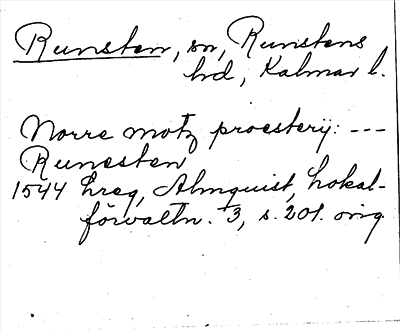 Runsten, sn, Runstens
hd, Kalmar l.
Norre motz proesterij: ---
Runesten
1544 hreg, Almquist, Lokal-
förvaltn. 3, s. 201. orig.